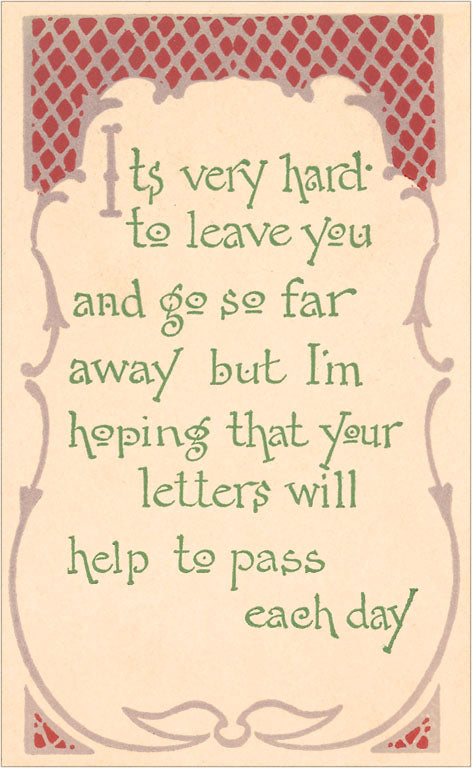 Its very hard
to leave you
and go so far
away but I'm
hoping that your
letters will
help to pass
each day